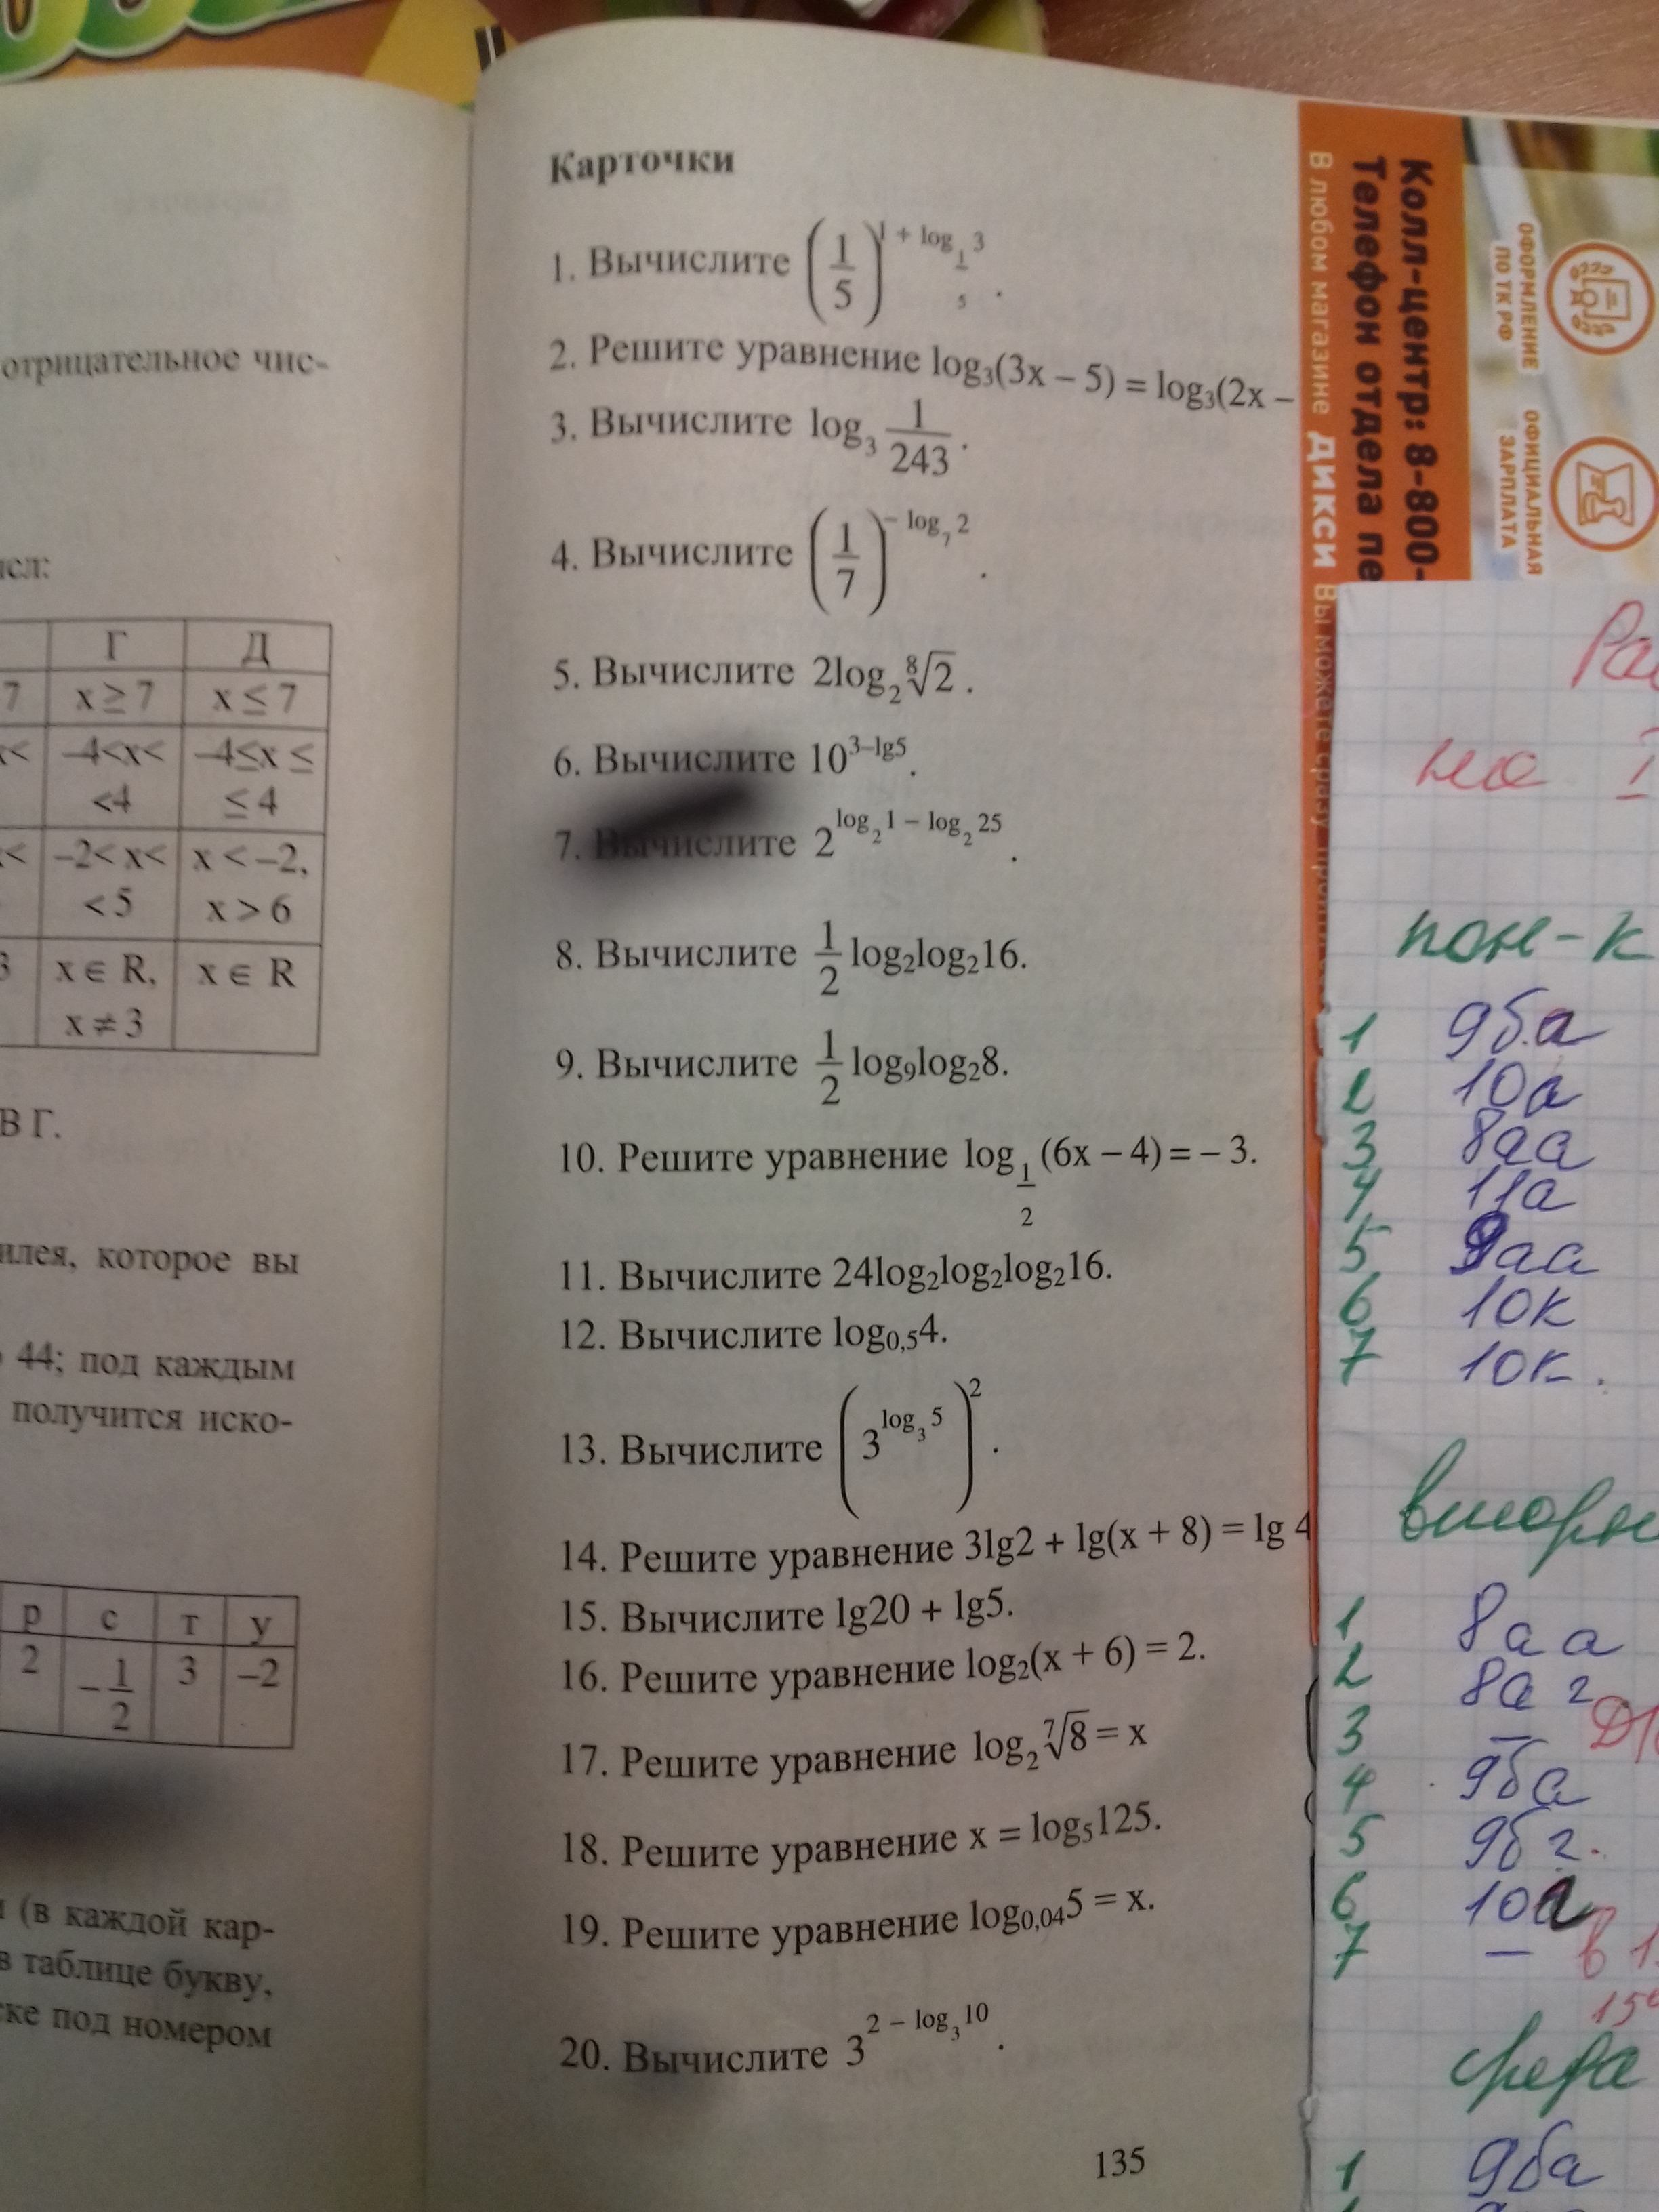 отрицательное чис-
Г Д
7 x ≥ 7 x ≤ 7
–4<x< –4≤x ≤
<4 ≤ 4
–2< x< x < –2,
< 5 x > 6
3 x ∈ R, x ∈ R
x ≠ 3
В Г.
которое вы
44; под каждым
получится иско-
р с т у
2 –1/2 3 –2
(в каждой кар-
в таблице букву,
под номером
Карточки
1. Вычислите (1/5)^(1 + log_(1/5) 3).
2. Решите уравнение log₃(3x – 5) = log₃(2x –
3. Вычислите log₃ 1/243.
4. Вычислите (1/7)^(– log₇ 2).
5. Вычислите 2log₂ ⁸√2.
6. Вычислите 10^(3–lg5).
7. Вычислите 2^(log₂ 1 – log₂ 25).
8. Вычислите 1/2 log₂log₂16.
9. Вычислите 1/2 log₉log₂8.
10. Решите уравнение log_(1/2) (6x – 4) = – 3.
11. Вычислите 24log₂log₂log₂16.
12. Вычислите log₀,₅4.
13. Вычислите (3^(log₃ 5))².
14. Решите уравнение 3lg2 + lg(x + 8) = lg 4
15. Вычислите lg20 + lg5.
16. Решите уравнение log₂(x + 6) = 2.
17. Решите уравнение log₂ ⁷√8 = x
18. Решите уравнение x = log₅125.
19. Решите уравнение log₀,₀₄5 = x.
20. Вычислите 3^(2 – log₃ 10).
135
Колл-центр: 8-800-
Телефон отдела пе
В любом магазине ДИКСИ Вы можете сразу
ОФОРМЛЕНИЕ
ПО ТК РФ
ОФИЦИАЛЬНАЯ
ЗАРПЛАТА
Ра
на I
пон-к
1 9б.а
2 10а
3 8аа
4 11а
5 9аа
6 10к
7 10к.
вторн
1 8аа
2 8аг
3 –
4 9ба
5 9бг.
6 10а
7 –
в 1
среда
1 9ба